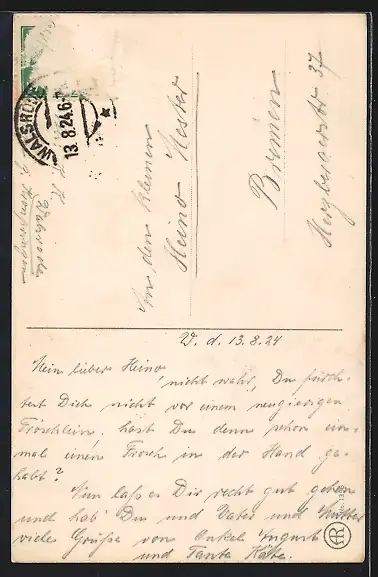 WALSRODE
13.8.24.6-7
An den kleinen
Heino Kester
Bremen
Herzbergerstr 37
Walsrode
W. d. 13.8.24
Mein lieber Heino,
nicht wahr, Du fürch-
test Dich nicht vor einem neugierigen
Fröschlein, hast Du denn schon ein-
mal einen Frosch in der Hand ge-
habt?
Nun laß es Dir recht gut gehen
und hab' Du und Vater und Mutter
viele Grüße von Onkel August
und Tante Käthe.